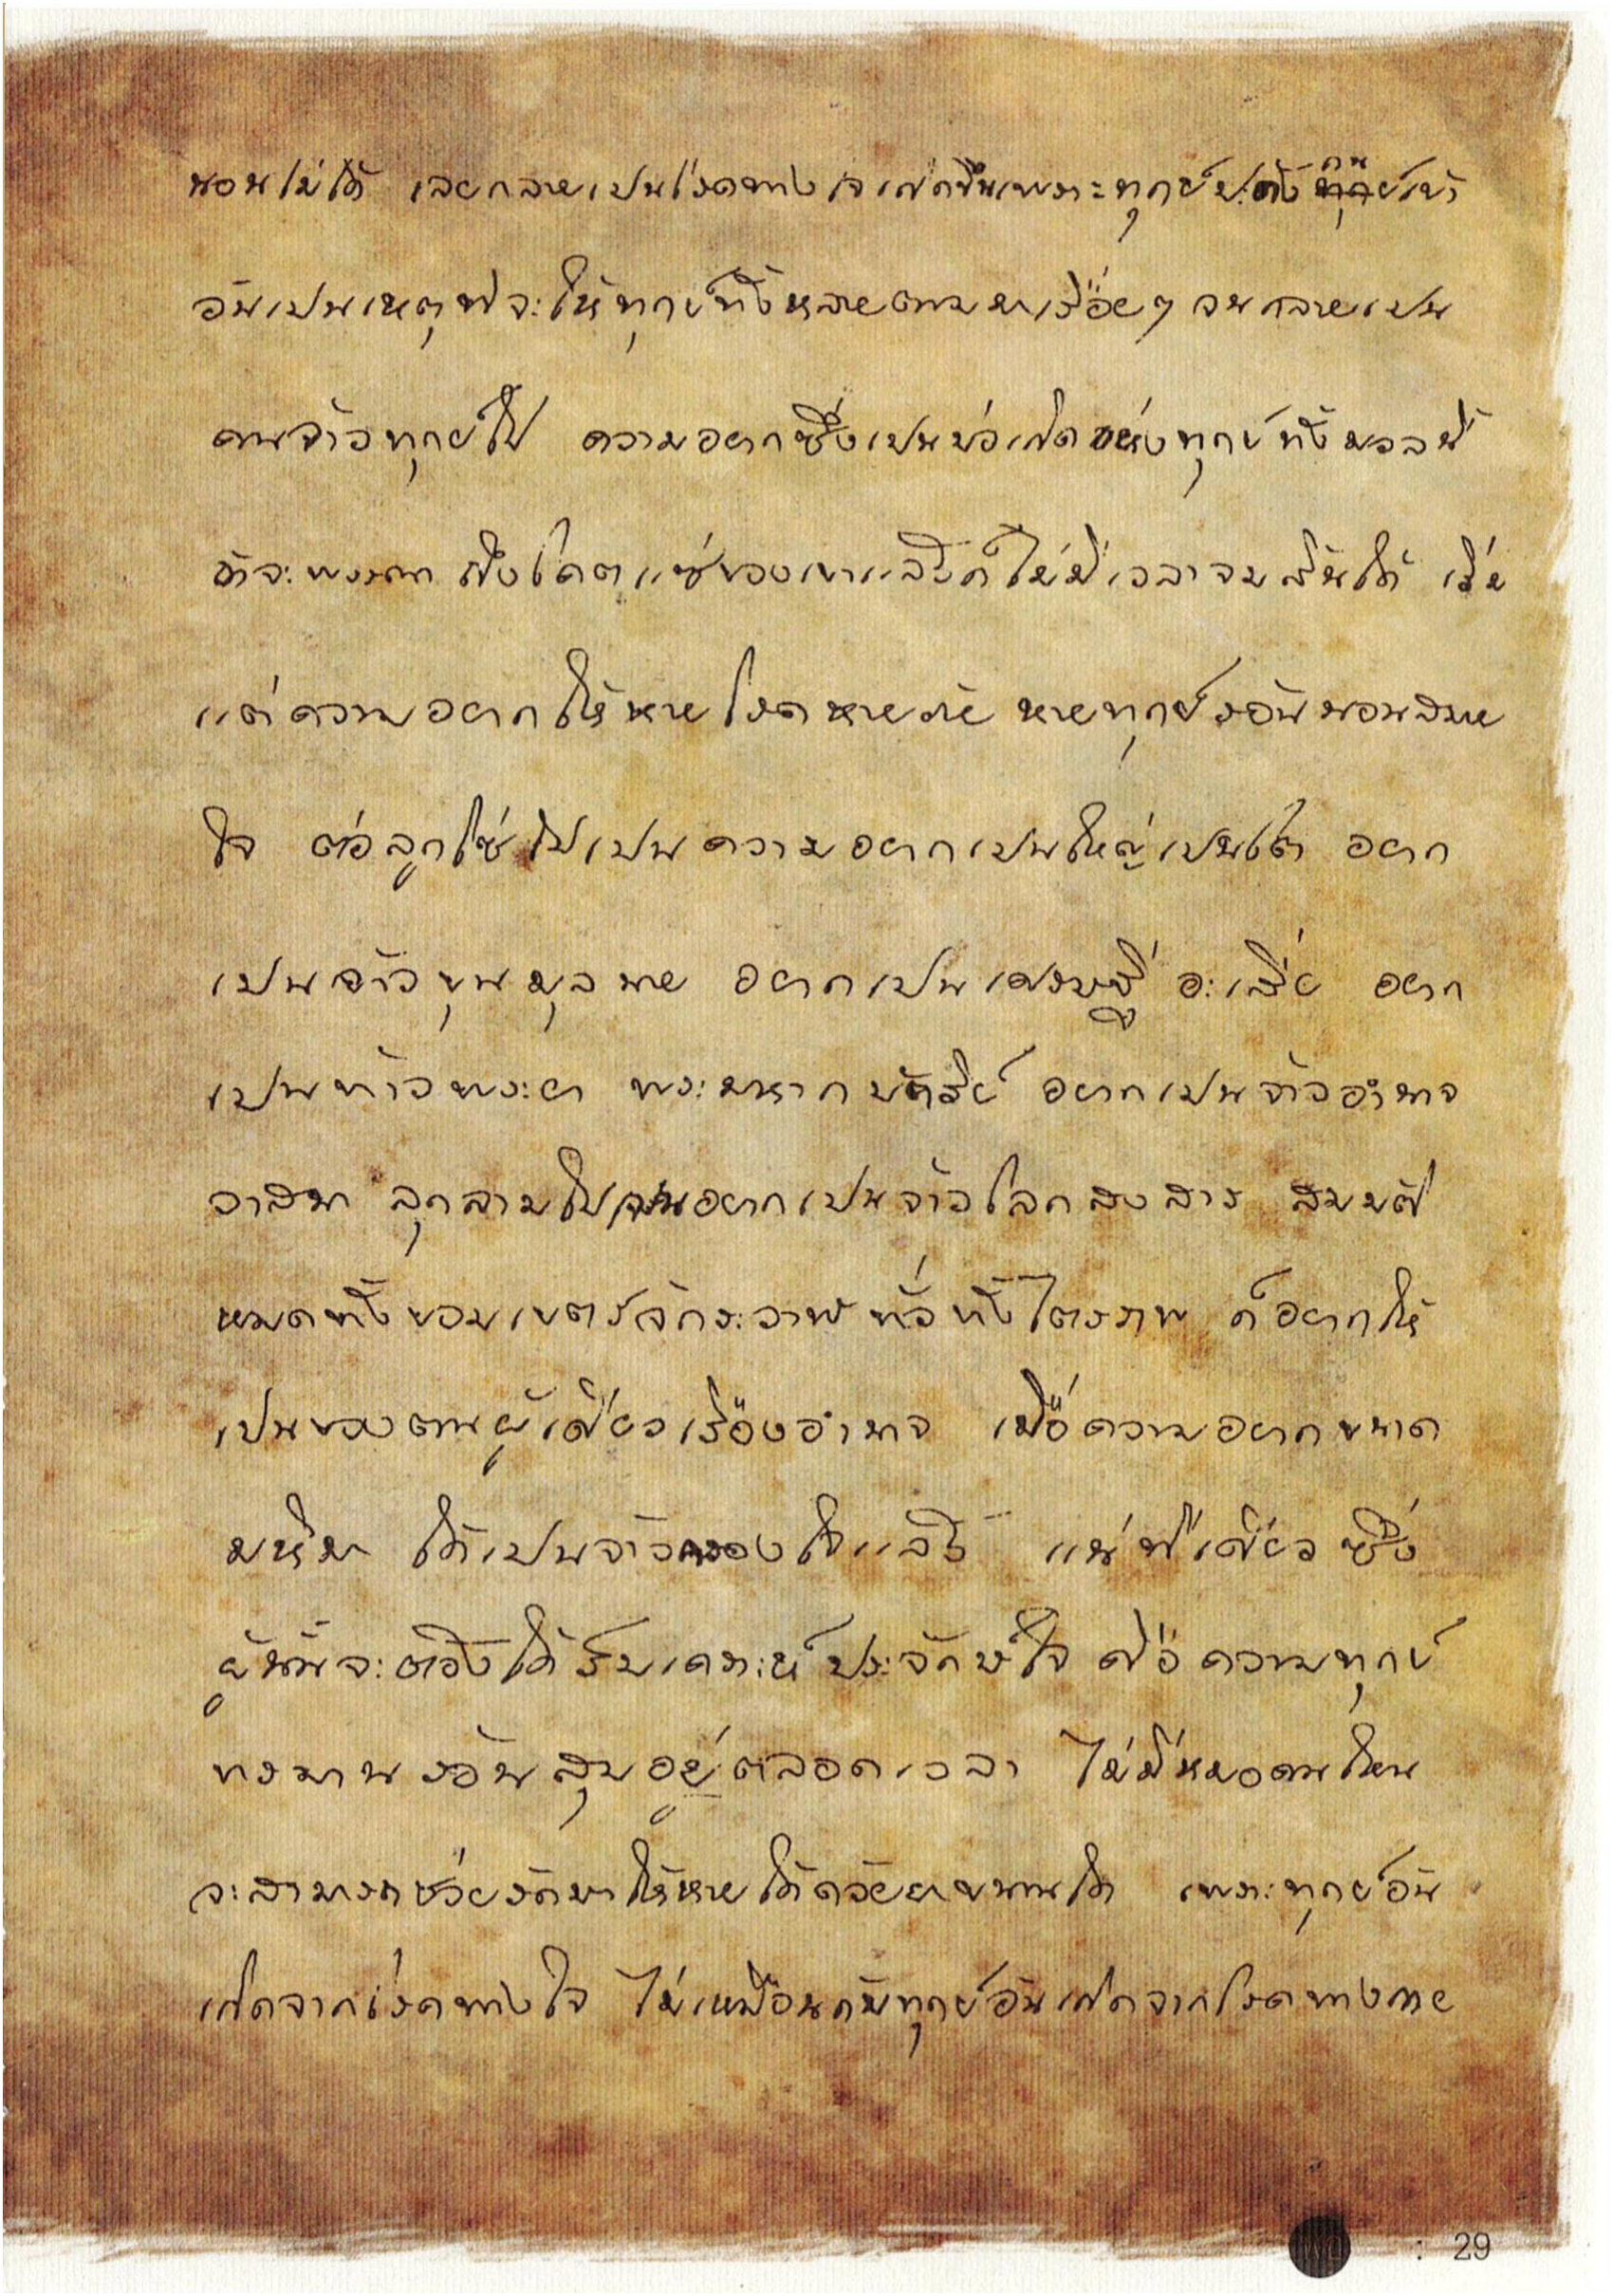 นอนไม่ได้ เลยกลายเป็นโรคทางใจเกิดขึ้นเพราะทุกข์ปะดังกันเข้า
อันเป็นเหตุที่จะให้ทุกข์ทั้งหลายตามมาเรื่อยๆ จนกลายเป็น
คนเจ้าทุกข์ไป ความอยากซึ่งเป็นบ่อเกิดแห่งทุกข์ทั้งมวลนี้
ถ้าจะพรรณาถึงโคตรแซ่ของเขาแล้วก็ไม่มีเวลาจบสิ้นได้ เริ่ม
แต่ความอยากให้หายโรคหายภัย หายทุกข์ร้อนนอนสบาย
ใจ ต่อลูกโซ่ไปเป็นความอยากเป็นใหญ่เป็นโต อยาก
เป็นเจ้าขุนมุลนาย อยากเป็นเศรษฐี อะเสี่ย อยาก
เป็นท้าวพระยา พระมหากษัตริย์ อยากเป็นเจ้าอำนาจ
วาสนา ลุกลามไปจนอยากเป็นเจ้าโลกสงสาร สมมติ
หมดทั้งขอบเขตร์จักระวาฬทั่วทั้งไตรภพ ก็อยากให้
เป็นของตนผู้เดียวเรืองอำนาจ เมื่อความอยากขนาด
มหึมา ได้เป็นเจ้าครองใจแล้ว แน่ทีเดียวซึ่ง
ผู้นั้นจะต้องได้รับเคราะห์ประจักษ์ใจ คือความทุกข์
ทรมานร้อนสุมอยู่ตลอดเวลา ไม่มีหมอคนไหน
จะสามารถช่วยรักษาให้หายได้ด้วยยาขนานใด เพราะทุกข์อัน
เกิดจากโรคทางใจ ไม่เหมือนกับทุกข์อันเกิดจากโรคทางกาย
: 29